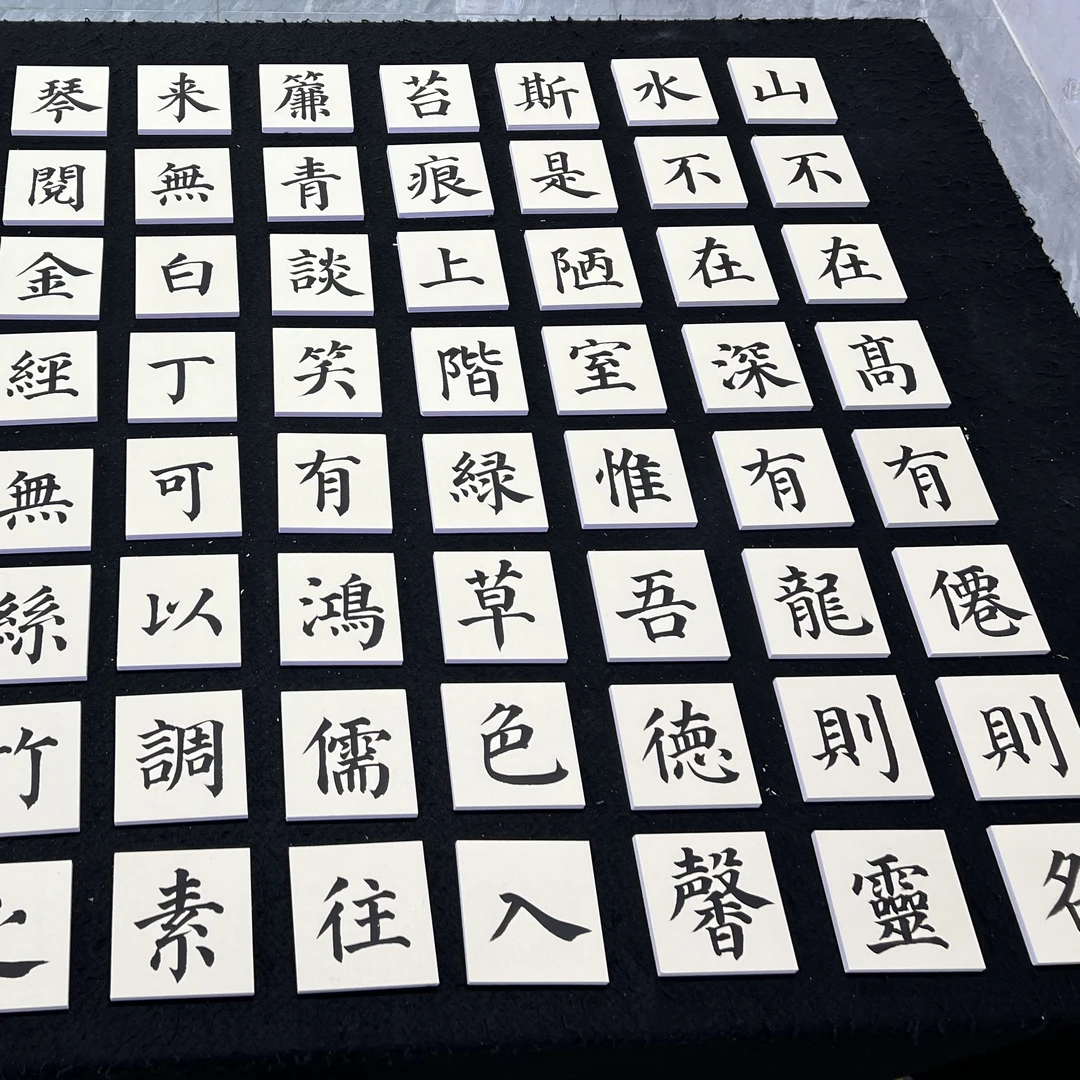 山不在髙有僊則名
水不在深有龍則靈
斯是陋室惟吾徳馨
苔痕上階緑草色入
簾青談笑有鴻儒往
来無白丁可以調素
琴閱金經無絲竹之